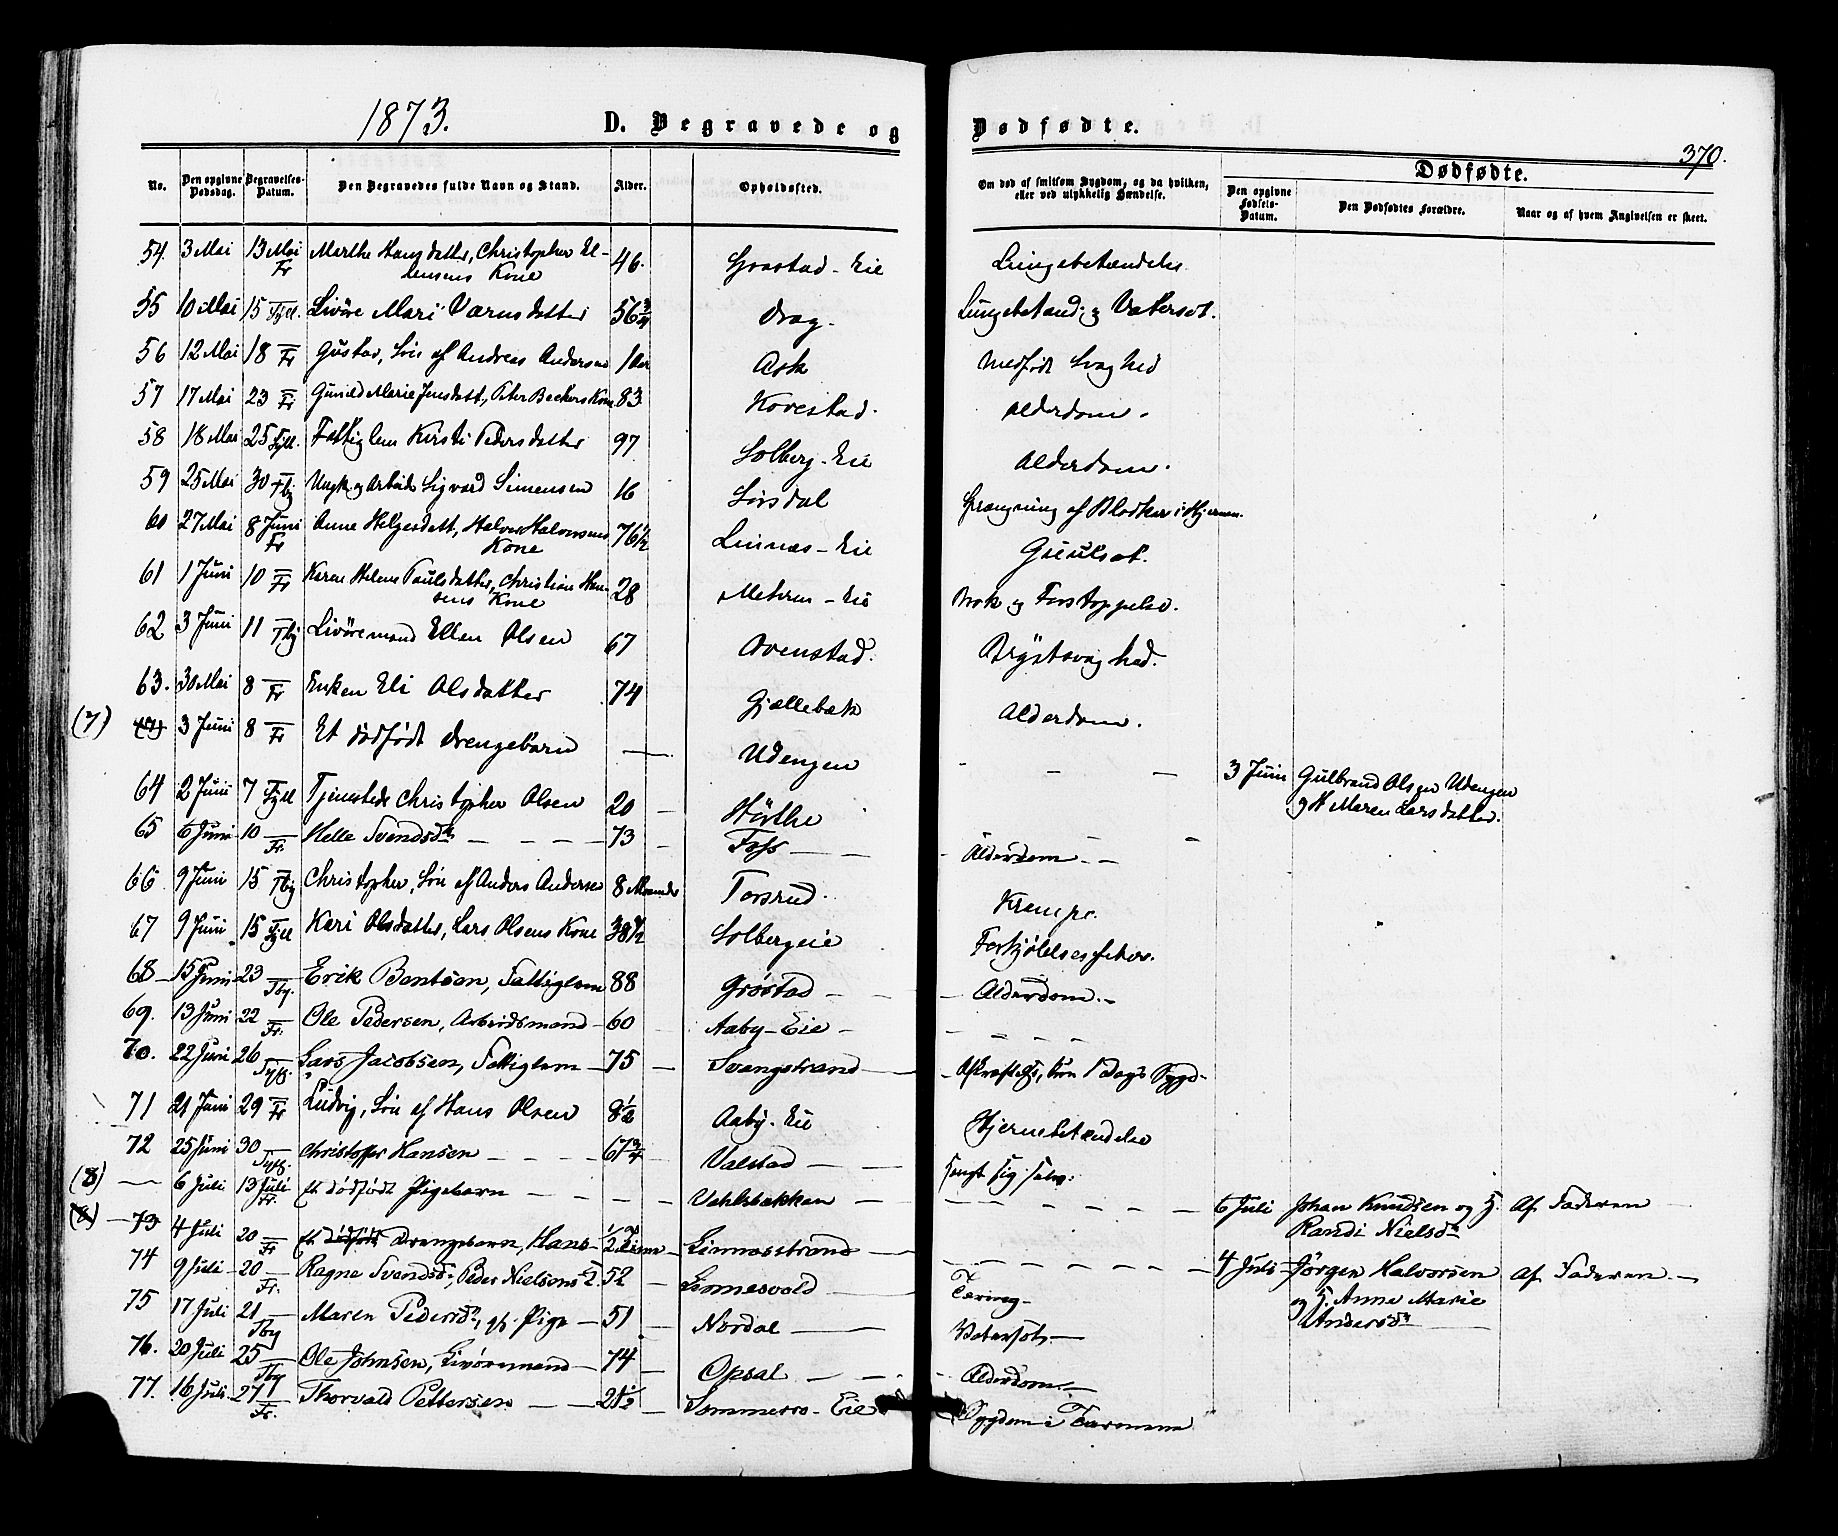 1873. D. Begravede og Dødfødte. 370.
No. Den opgivne Dødsdag. Begravelses-Datum. Den Begravedes fulde Navn og Stand. Alder. Opholdssted. Om død af smitsom Sygdom, og da hvilken, eller ved ulykkelig Hændelse. Dødfødte.
Den opgivne Fødsels-Datum. Den Dødfødtes Forældre. Naar og af hvem Angivelsen er skeet.
54 3 Mai 13 Mai Fr Marthe Hansdatter, Christopher El- 46. Eie Lungebetændelse
lensens Kone
55 10 Mai 15 — Syll. Livöre Mari Værnsdatter 56¾ Drag. Lungebetænd: og Vatersot.
56 12 Mai 18 — Fr Gustav, Søn af Andreas Andersen 1 Aar Ask Medfödt Svaghed
57 17 Mai 23 — Fr Gunild Marie Jensdatt, Peter Beckers Kone 83 Kovestad. Alderdom.
58 18 Mai 25 Syll. Fattiglem Kirsti Pedersdatter 97 Solberg-Eie Alderdom.
59 25 Mai 30 — Tbj Ungk. og Arbeids Sigvard Simensen 16 Sörsdal Sprængning af Blodkar i Hjernen.
60 27 Mai 8 Juni Fr Anne Helgesdatt, Halvor Halvorsens 76½ Linnæs-Eie Guulsot.
Kone
61 1 Juni 10 — Fr Karen Helene Paulsdatter, Christian Han- 28 Mehren-Eie Brok og Forstoppelse.
sens Kone
62 3 Juni 11 — Tbj Livöremand Ellen Olsen 67 Ovenstad. Brystsvaghed.
63. 30 Mai 8 — Fr Enken Eli Olsdatter 74 Gjellebæk Alderdom.
(7) (7) 3 Juni 8 — Fr Et dödfödt Drengebarn — Udengen - - - 3 Juni Gulbrand Olsen Udengen
og H. Maren Larsdatter.
64 2 Juni 7 — Syll Tjenestedr Christopher Olsen 20 - Hörthe
65 6 Juni 10 — Fr. Helle Svendsd - - - - 73 - Foss - - Alderdom - -
66 9 Juni 15 Tbj Christopher, Søn af Anders Andersen 8 Maaneder Torsrud. Krampe.
67 9 Juni 15 — Syll Kari Olsdatter, Lars Olsens Kone 38½ Solbergeie Forkjölelsesfeber.
68 - 15 Juni 23 — Tbj. Erik Bentsen, Fattiglem 88 Gröstad - - Alderdom. -
69. 13 Juni 22 — Fr. Ole Pedersen, Arbeidsmand - 60 - Aaby-Eie - - - - -
70. 22 Juni 26 — Lars Jacobsen, Fattiglem - 75 - Svangstrand - Afkræftelse, kun 1 Dags Sygd -
71 21 Juni 29 — Fr Ludvig, Søn af Hans Olsen 8½ Aaby-Eie Hjernebetændelse
72 25 Juni 30 — Christoffer Hansen - - - - 67¾ - Valstad - - hengt sig selv.
(8) — 6 Juli 13 Juli Fr. et dödfödt Pigebarn - - - - - Vahlsbakken - - - - - - 6 Juli Johan Knudsen og H. Af Faderen
Randi Nielsd
(8) - 73 4 Juli 20 — Fr et dödfödt Drengebarn, Hans - ½ Time - Linnæsstrand - - - - - - - 4 Juli - Jörgen Halvorsen Af Faderen -
og H. Anne Marie
Andersd
74 9 Juli 20 — Fr. Ragne Svendsd, Peder Nielsens 52 - Linnesvold - Tæring -
75 17 Juli 21 — Tbj Maren Pedersd, Pige - 51 Nordal - Vatersot, -
76. 20 Juli 25 — Tbj Ole Johnsen, Livöremand - 74 - Opsal - - - Alderdom. -
77. 16 Juli 27 — Fr. Thorvald Pettersen - - 21½ - Sommerro-Eie Sygdom i Tarmene